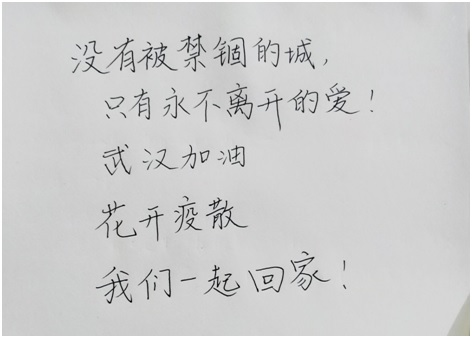 没有被禁锢的城，
只有永不离开的爱！
武汉加油
花开疫散
我们一起回家！